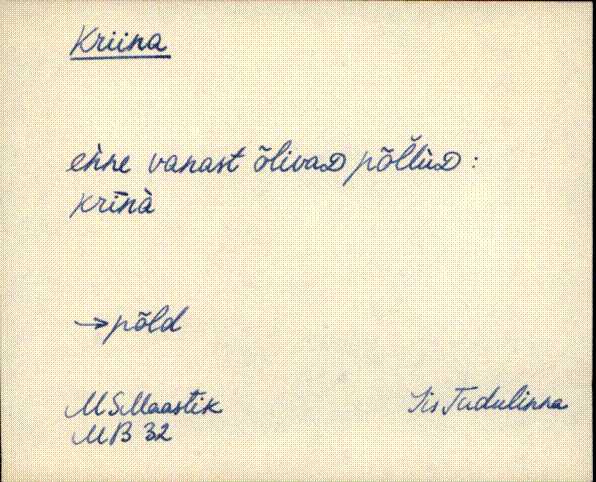 Kriina
eǹne vanast õlivaD põĽĽùD :
krīǹà
→ põld
MSMaastik
MB 32
Iis Tudulinna